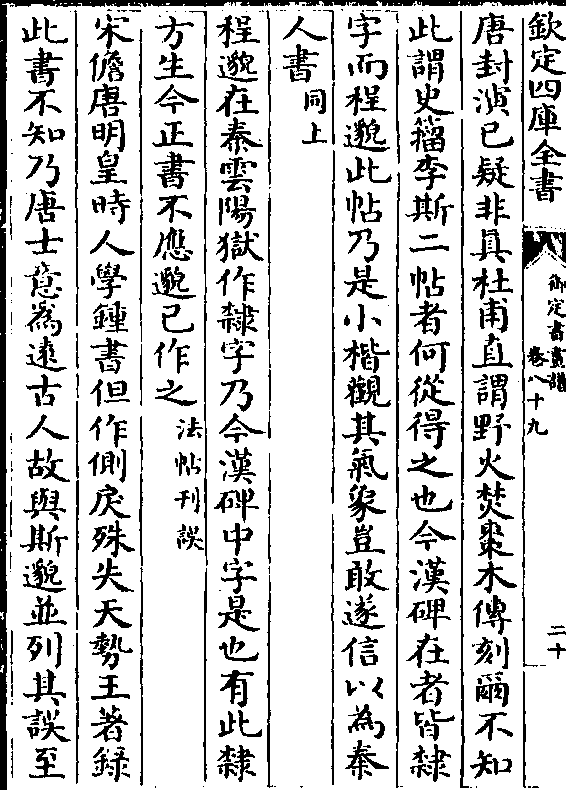 欽定四庫全書
御定書畫譜
卷八十九
二十
唐封演已疑非真杜甫直謂野火焚棗木傳刻爾不知
此謂史籀李斯二帖者何從得之也今漢碑在者皆隸
字而程邈此帖乃是小楷觀其氣象豈敢遂信以為秦
人書同上
程邈在秦雲陽獄作隸字乃今漢碑中字是也有此隸
方生今正書不應邈已作之法帖刊誤
宋儋唐明皇時人學鍾書但作側戾殊失天勢王著錄
此書不知乃唐士意為遠古人故與斯邈並列其誤至